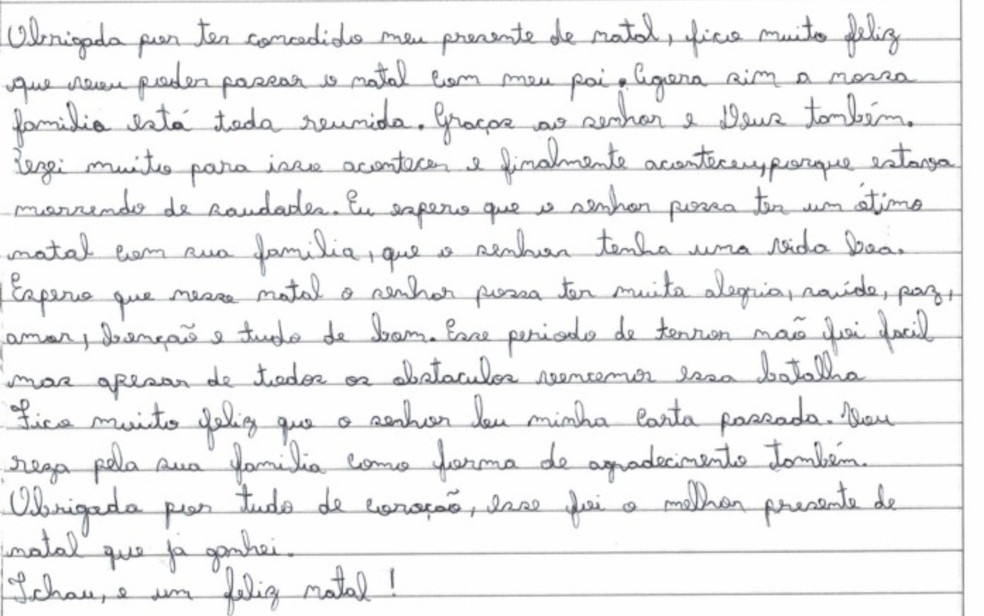 Obrigada por ter concedido meu presente de natal, fico muito feliz
que vou poder passar o natal com meu pai. Agora sim a nossa
familia está toda reunida. Graças ao senhor e Deus também.
Rezei muito para isso acontecer e finalmente aconteceu, porque estava
morrendo de saudades. Eu espero que o senhor possa ter um ótimo
natal com sua família, que o senhor tenha uma vida boa.
Espero que nesse natal o senhor possa ter muita alegria, saúde, paz,
amor, benção e tudo de bom. Esse periodo de terror não foi facil
mas apesar de todos os obstaculos vencemos essa batalha
Fico muito feliz que o senhor leu minha carta passada. Vou
reza pela sua familia como forma de agradecimento também.
Obrigada por tudo de coração, esse foi o melhor presente de
natal que já ganhei.
Tchau, e um feliz natal!